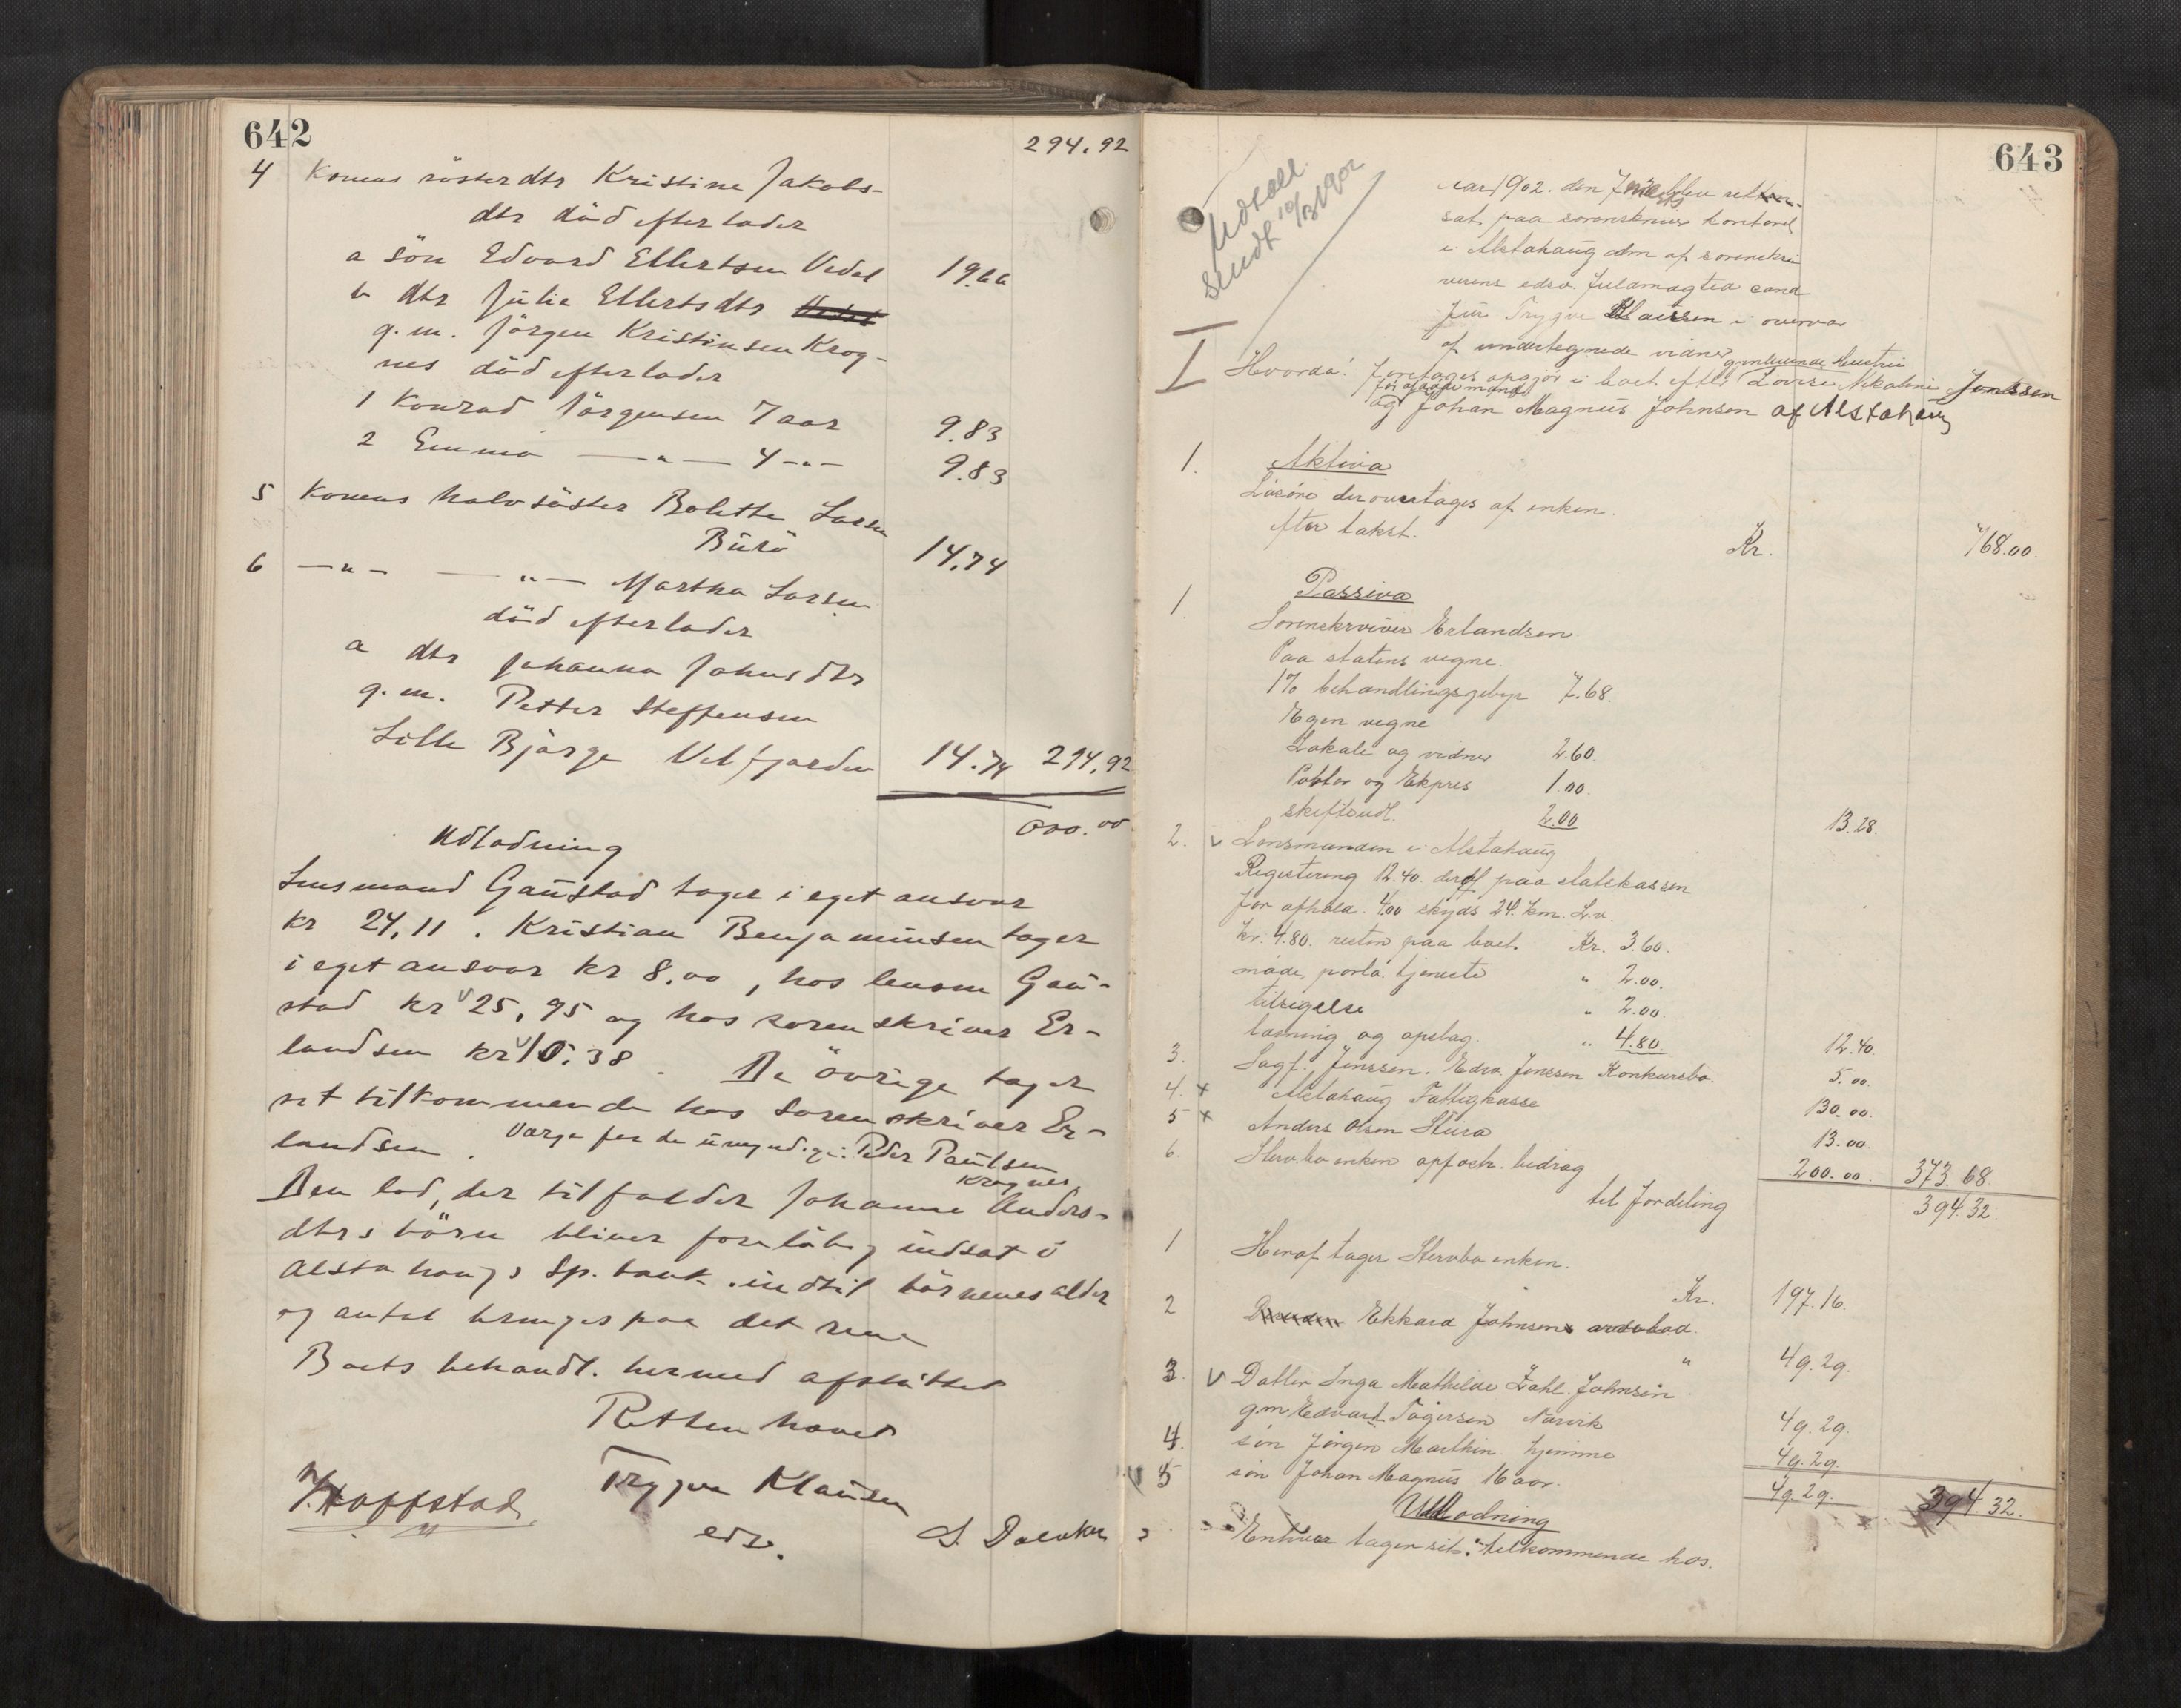 642
294.92
4 Konens söster dtr Kristine Jakobs-
dtr död efterlader
a sön Edvard Ellertsen Vedal 19.66
b dtr Julie Ellertsdtr
g.m. Jörgen Kristinsen Krog-
nes död efterlader
1 Konrad Jörgensen 7 aar 9.83
2 Emma —"— 4 -"- 9.83
5 Konens halvsöster Bolette Larsen
Burö 14.74
6 -"- —"— Martha Larsen
död efterlader
a dtr Johanna Johnsdtr
g.m. Petter Steffensen
Lille Bjørge Velfjorden 14.74 294.92
000.00
Udlodning
Lensmand Gaustad tager i eget ansvar
kr 24,11. Kristian Benjaminsen tager
i eget ansvar kr 8.00, hos lensm Gau-
stad kr 25,95 og hos sorenskriver Er-
landsen kr 10.38. De övrige tager
sit tilkommende hos Sorenskriver Er-
landsen. Værge for de umyndige: Peder Paulsen
Krognes
Den lod, der tilfalder Johanne Anders-
dtrs börn bliver foreløbig indsat i
Alstahaugs Sp.bank indtil börnenes alder
og antal bringes paa det rene
Boets behandl. hermed afsluttet
Retten hævet
Trygve Klausen
edsv.
Hoffstad
643
Udtall
sendt 10/13 1902
Aar 1902. den 7 blev ret
sat paa sorenskriver kontoret
i Alstahaug adm af sorenskri
verens edsv. fuldmægtig cand
jur Trygve Klausen i overvær
af undertegnede vidner
I Hvorda: Foretages opgjør i boet efter Lovise Nikoline Jenssen
gjenlevende Hustru
før afdøde mand
og Johan Magnus Johnsen af Alstahaug
1. Aktiva
Løsøre der overtages af enken
efter takst. Kr. 768.00.
1 Passiva
Sorenskriver Erlandsen
Paa statens vegne.
1% behandlingsgebyr 7.68.
Egen vegne
Lokale og vidner 2.60.
Porto og Ekpres 1.00.
skifteudl. 2.00 13.28.
2. v Lensmanden i Alstahaug
Registering 12.40. deraf paa statskassen
for afhold. 4.00 skyds 24. km. L.v.
kr. 4.80. resten paa boet. Kr. 3.60.
møde, porto, tjeneste " 2.00.
tilsigelse " 2.00.
lavning og opslag. " 4.80. 12.40.
3. Sagf. Jenssen. Edv. Jenssen Konkursbo. 5.00.
4. x Alstahaug Fattigkasse 130.00.
5 x Anders Olsen Stura 13.00.
6. Stervboenken opfostr. bidrag 200.00. 373.68.
til fordeling 394.32.
1 Heraf tager Stervboenken.
Kr. 197.16.
2 Ekkard Johnsen
" 49.29.
3. v Datter Inga Mathilde Zahl Johnsen
g.m Edvart Tøgersen Narvik 49.29.
4. søn Jørgen Marthin hjemme 49.29.
v 5 søn Johan Magnus 16 aar. 49.29. 394.32.
Udlodning
Enhver tager sit tilkommende hos.